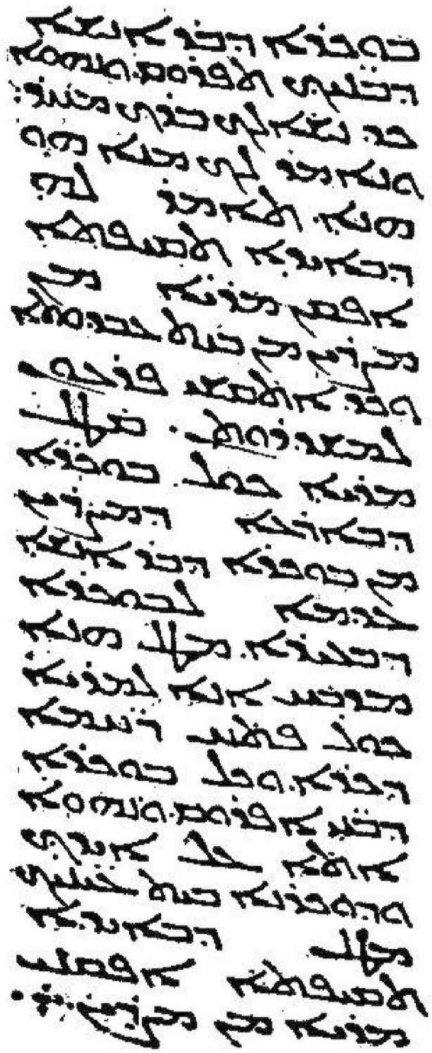 ܒܘܟܪܐ ܕܒܪ ܐܢܫܐ
ܕܒܢܝܟ ܬܦܪܘܩ. ܘܢܗܘܐ
ܟܕ ܢܫܐܠܟ ܒܪܟ ܡܚܪ.
ܘܢܐܡܪ ܠܟ ܡܢܐ ܗܘ
ܗܢܐ. ܬܐܡܪ ܠܗ
ܕܒܐܝܕܐ ܬܩܝܦܬܐ
ܐܦܩܢ ܡܪܝܐ ܡܢ
ܡܨܪܝܢ ܡܢ ܒܝܬ ܥܒܕܘܬܐ
ܘܟܕ ܐܬܩܫܝ ܦܪܥܘܢ
ܠܡܫܕܪܘܬܢ. ܩܛܠ
ܡܪܝܐ ܟܠ ܒܘܟܪܐ
ܕܒܐܪܥܐ ܕܡܨܪܝܢ
ܡܢ ܒܘܟܪܐ ܕܒܪ ܐܢܫܐ
ܥܕܡܐ ܠܒܘܟܪܐ
ܕܒܥܝܪܐ. ܡܛܠ ܗܢܐ
ܡܕܒܚ ܐܢܐ ܠܡܪܝܐ
ܟܠ ܦܬܚ ܪܚܡܐ
ܕܟܪܐ. ܘܟܠ ܒܘܟܪܐ
ܕܒܢܝ ܐܦܪܘܩ. ܘܢܗܘܐ
ܐܬܐ ܥܠ ܐܝܕܟ
ܘܕܘܟܪܢܐ ܒܝܬ ܥܝܢܝܟ
ܡܛܠ ܕܒܐܝܕܐ
ܬܩܝܦܬܐ ܐܦܩܢ
ܡܪܝܐ ܡܢ ܡܨܪܝܢ܀